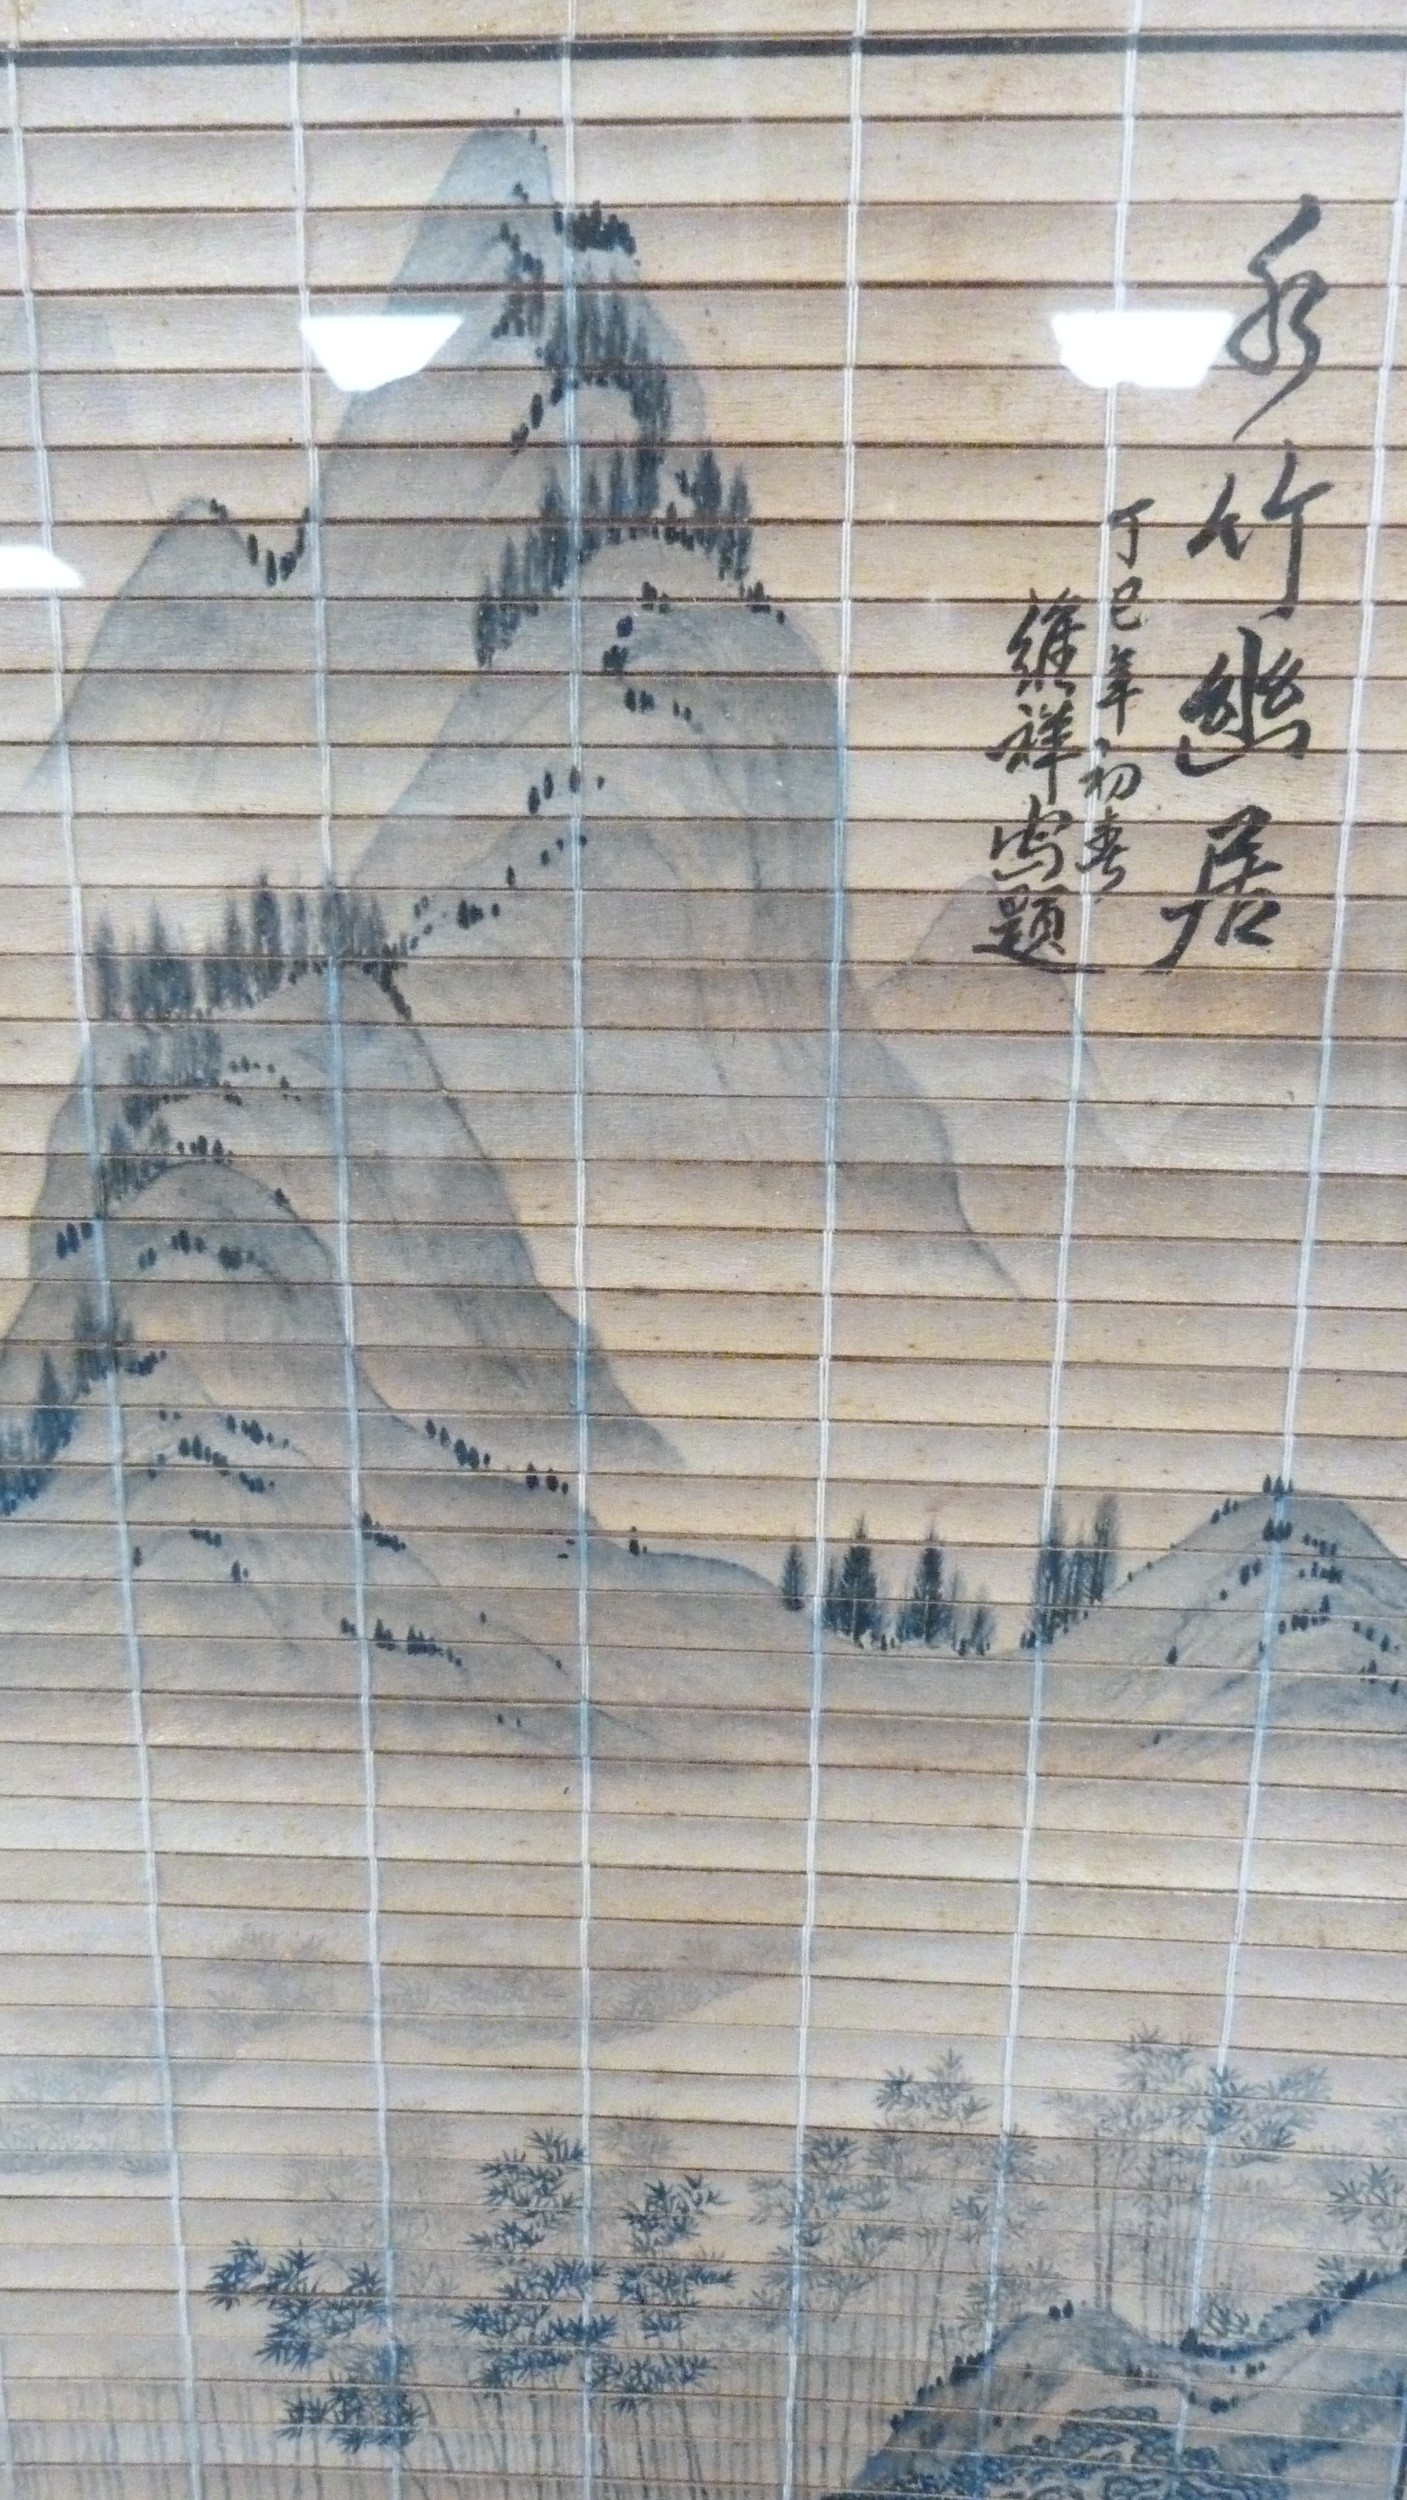 水竹幽居
丁巳年初春
維祥寫題